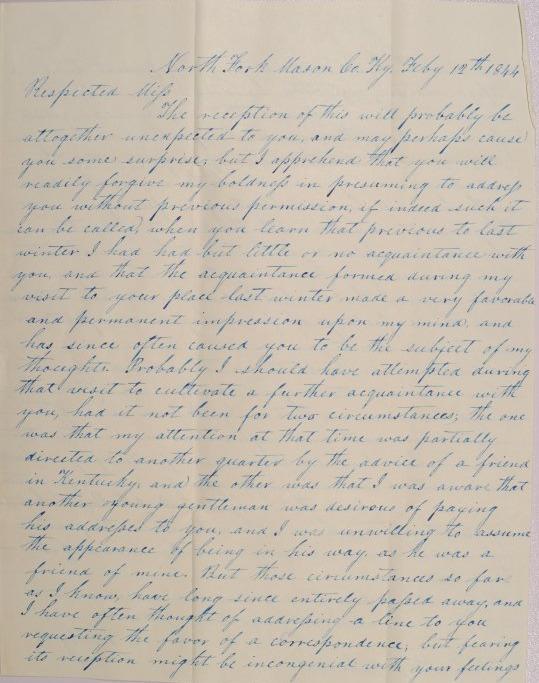 North Fork Mason Co. Ky. Feby 12th 1844
Respected Miss
The reception of this will probably be
altogether unexpected to you, and may perhaps cause
you some surprise; but I apprehend that you will
readily forgive my boldness in presuming to address
you without previous permission, if indeed such it
can be called, when you learn that previous to last
winter I had had but little or no acquaintance with
you, and that the acquaintance formed during my
visit to your place last winter made a very favorable
and permanent impression upon my mind, and
has since often caused you to be the subject of my
thoughts. Probably I should have attempted during
that visit to cultivate a further acquaintance with
you, had it not been for two circumstances; the one
was that my attention at that time was partially
directed to another quarter by the advice of a friend
in Kentucky, and the other was that I was aware that
another young gentleman was desirous of paying
his addresses to you, and I was unwilling to assume
the appearance of being in his way, as he was a
friend of mine. But those circumstances so far
as I know, have long since entirely passed away, and
I have often thought of addressing a line to you
requesting the favor of a correspondence; but fearing
its reception might be incongenial with your feelings